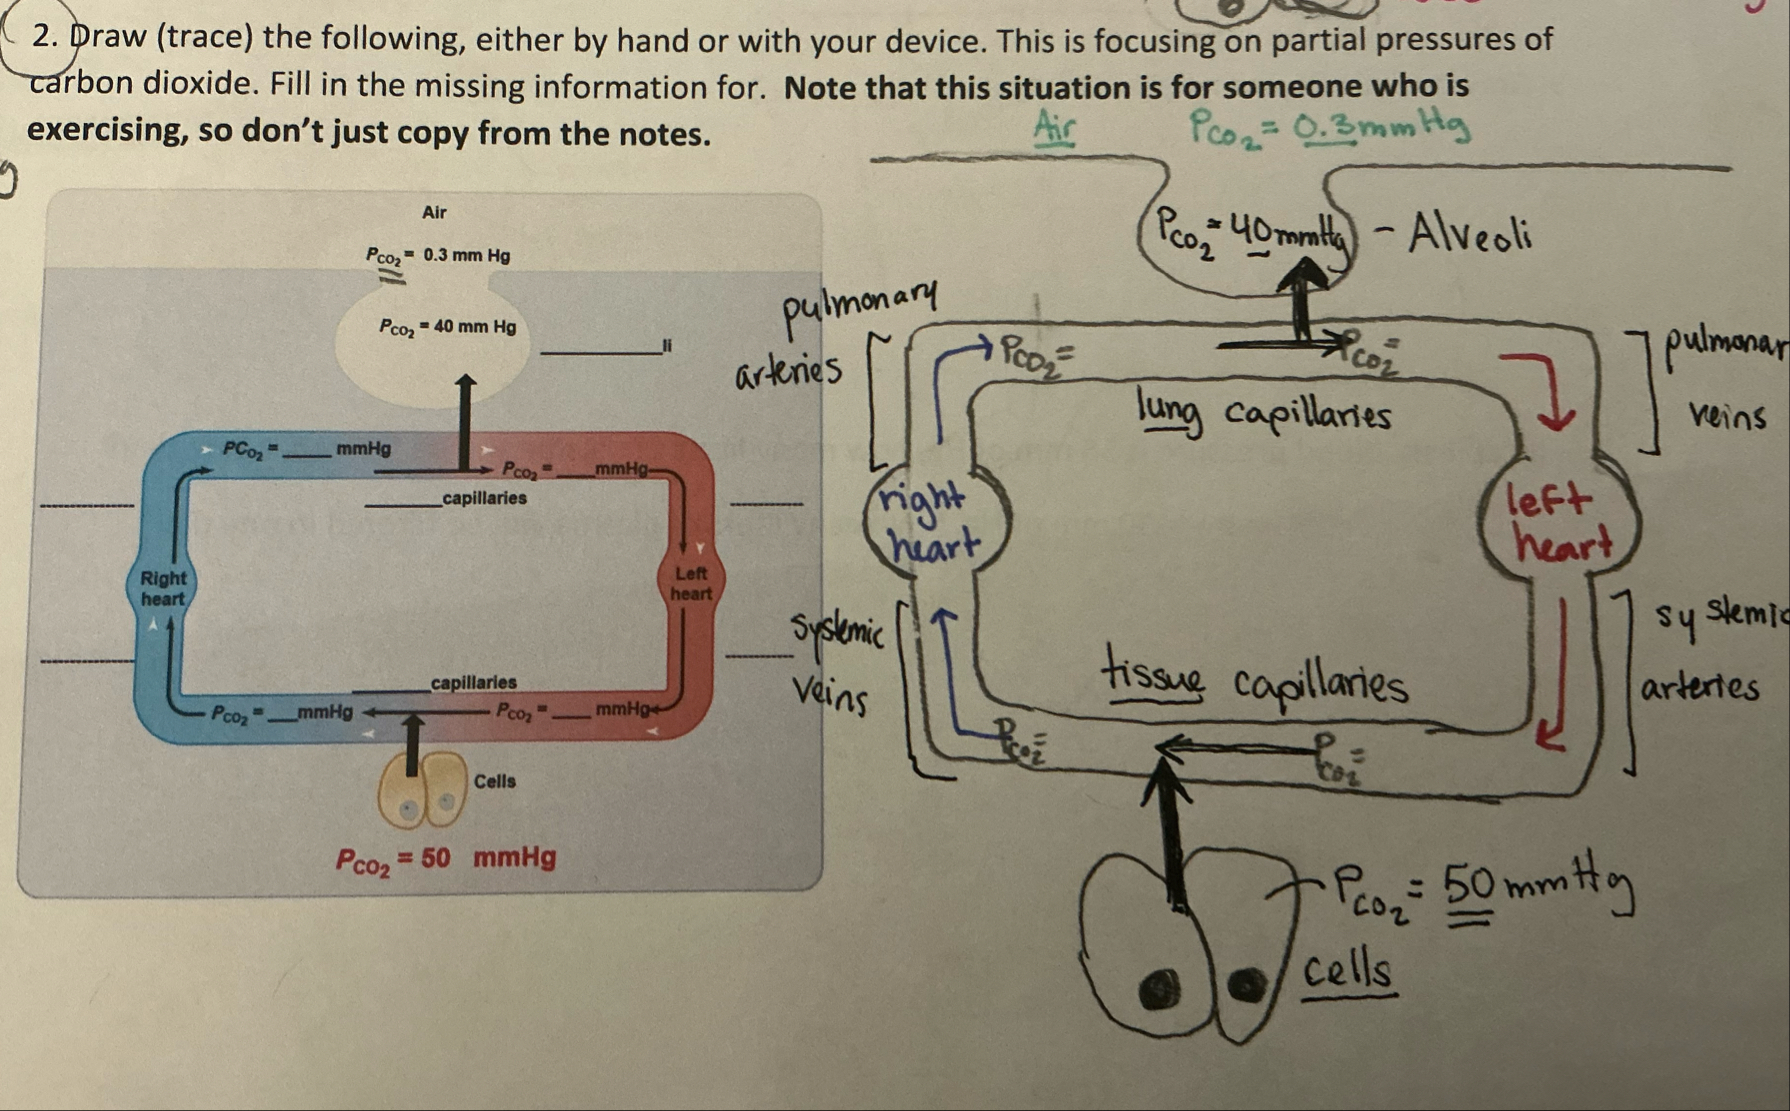 2. Draw (trace) the following, either by hand or with your device. This is focusing on partial pressures of
carbon dioxide. Fill in the missing information for. Note that this situation is for someone who is
exercising, so don't just copy from the notes.
Air
PCO2 = 0.3 mm Hg
PCO2 = 40 mm Hg
________li
PCO2 = ____ mmHg
PCO2 = ____mmHg
______capillaries
Right
heart
Left
heart
______capillaries
PCO2 = __mmHg
PCO2 = ____ mmHg
Cells
PCO2 = 50 mmHg
Air PCO2 = 0.3mmHg
PCO2 = 40mmHg - Alveoli
pulmonary
arteries
PCO2 =
PCO2 =
pulmonar
veins
lung capillaries
right
heart
left
heart
systemic
veins
systemic
arteries
tissue capillaries
PCO2 =
PCO2 =
PCO2 = 50 mmHg
cells